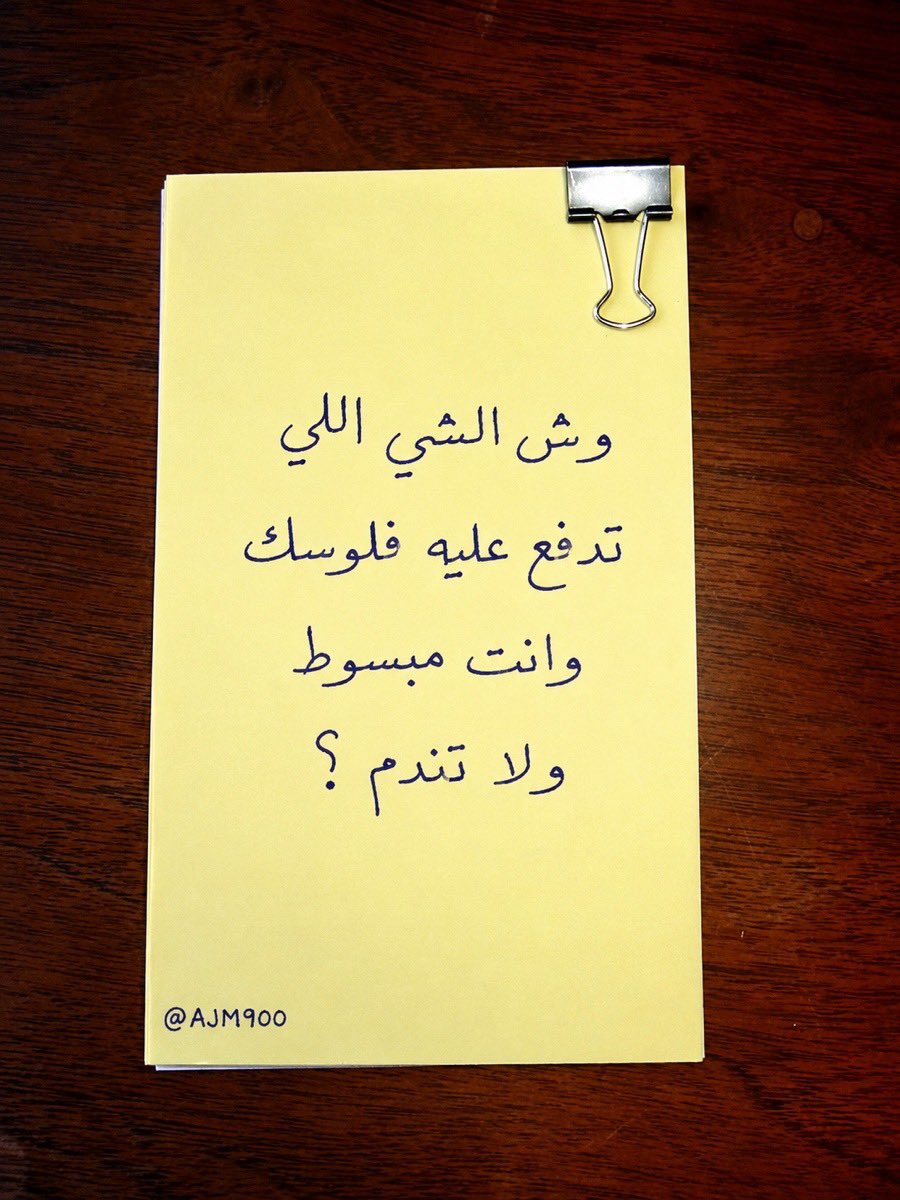 وش الشي اللي
تدفع عليه فلوسك
وانت مبسوط
ولا تندم ؟
@AJM900